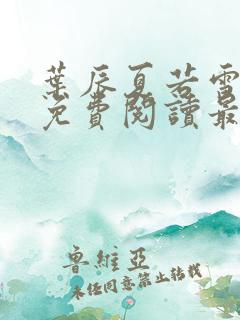 葉辰夏若雪
免費閱讀最
魯維亞
未經同意禁止轉載